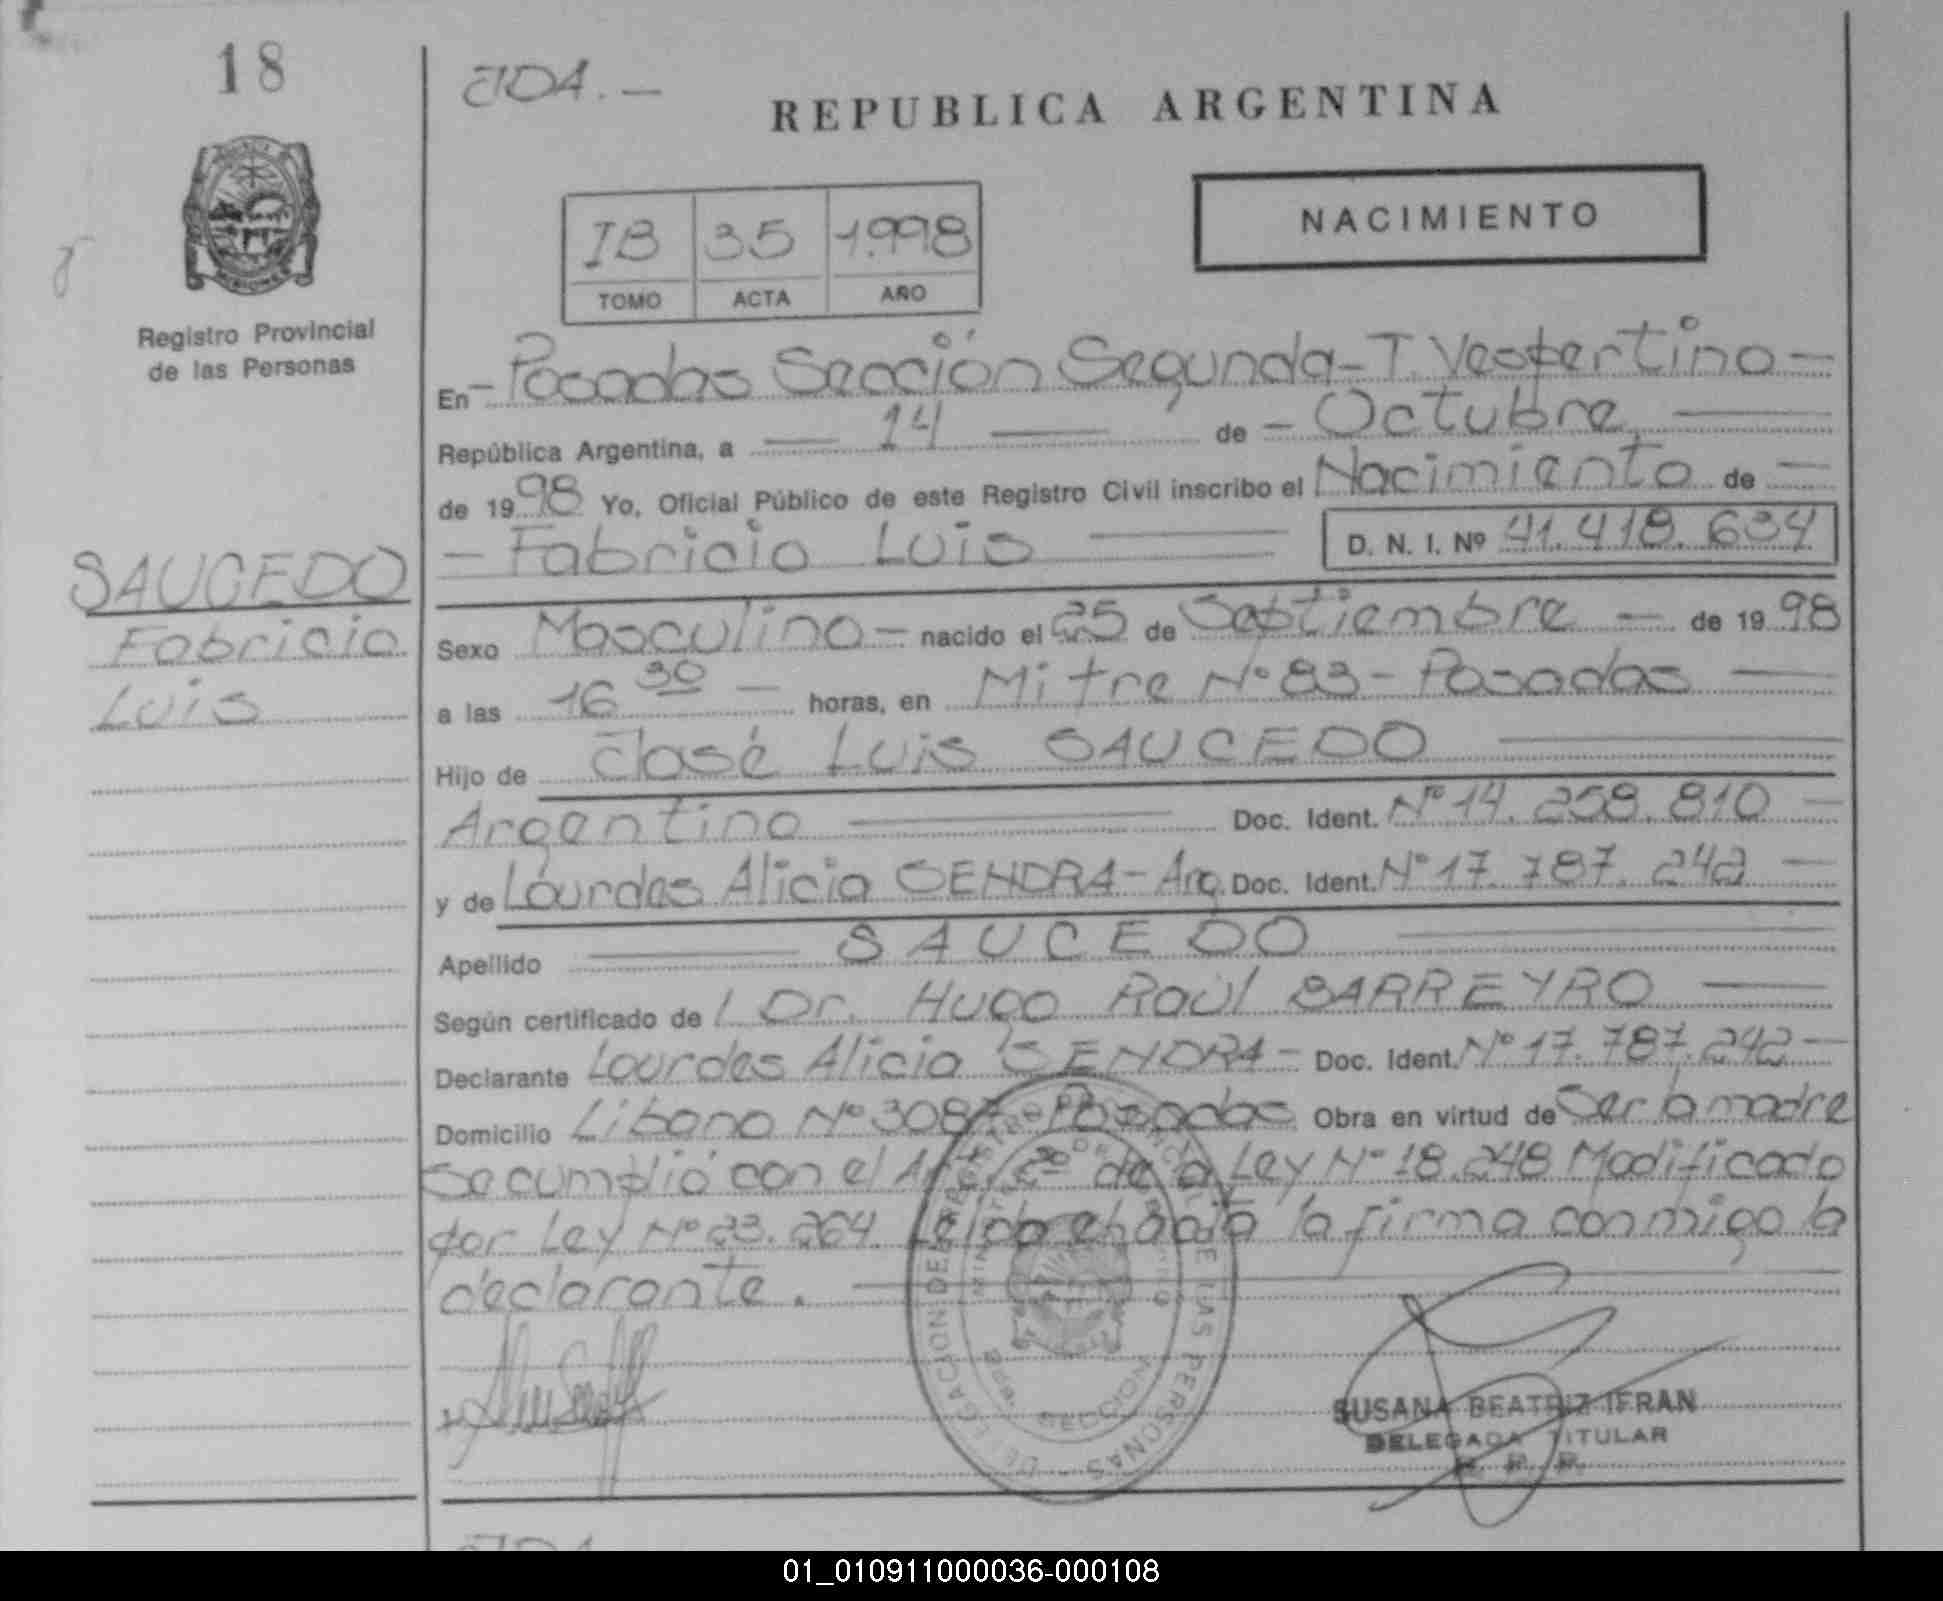 18
JDA.—
REPUBLICA ARGENTINA
NACIMIENTO
IB 35 1.998
TOMO ACTA AÑO
Registro Provincial
de las Personas
En – Posadas Sección Segunda – T. Vespertino –
República Argentina, a — 14 — de – Octubre —
de 1998 Yo, Oficial Público de este Registro Civil inscribo el Nacimiento de —
– Fabricio Luis — D. N. I. Nº 41.418.634
SAUCEDO
Fabricio
Luis
Sexo Masculino – nacido el 25 de Septiembre — de 1998
a las 16 30 — horas, en Mitre Nº 83 – Posadas —
Hijo de José Luis SAUCEDO —
Argentino — Doc. Ident. Nº 14.258.810 —
y de Lourdes Alicia SENDRA – Arg. Doc. Ident. Nº 17.787.242 —
Apellido — SAUCEDO —
Según certificado de l Dr. Hugo Raúl BARREYRO —
Declarante Lourdes Alicia SENDRA – Doc. Ident. Nº 17.787.242 —
Domicilio Libano Nº 3087 Posadas Obra en virtud de Ser la madre
Se cumplió con el Art. 2º de la Ley Nº 18.248 Modificado
por Ley Nº 23.264. Leída el acta la firma conmigo la
declarante. —
DELEGACION DEL REGISTRO PROVINCIAL DE LAS PERSONAS
SECCION
SUSANA BEATRIZ IFRAN
DELEGADA TITULAR
R. P. P.
01_010911000036-000108